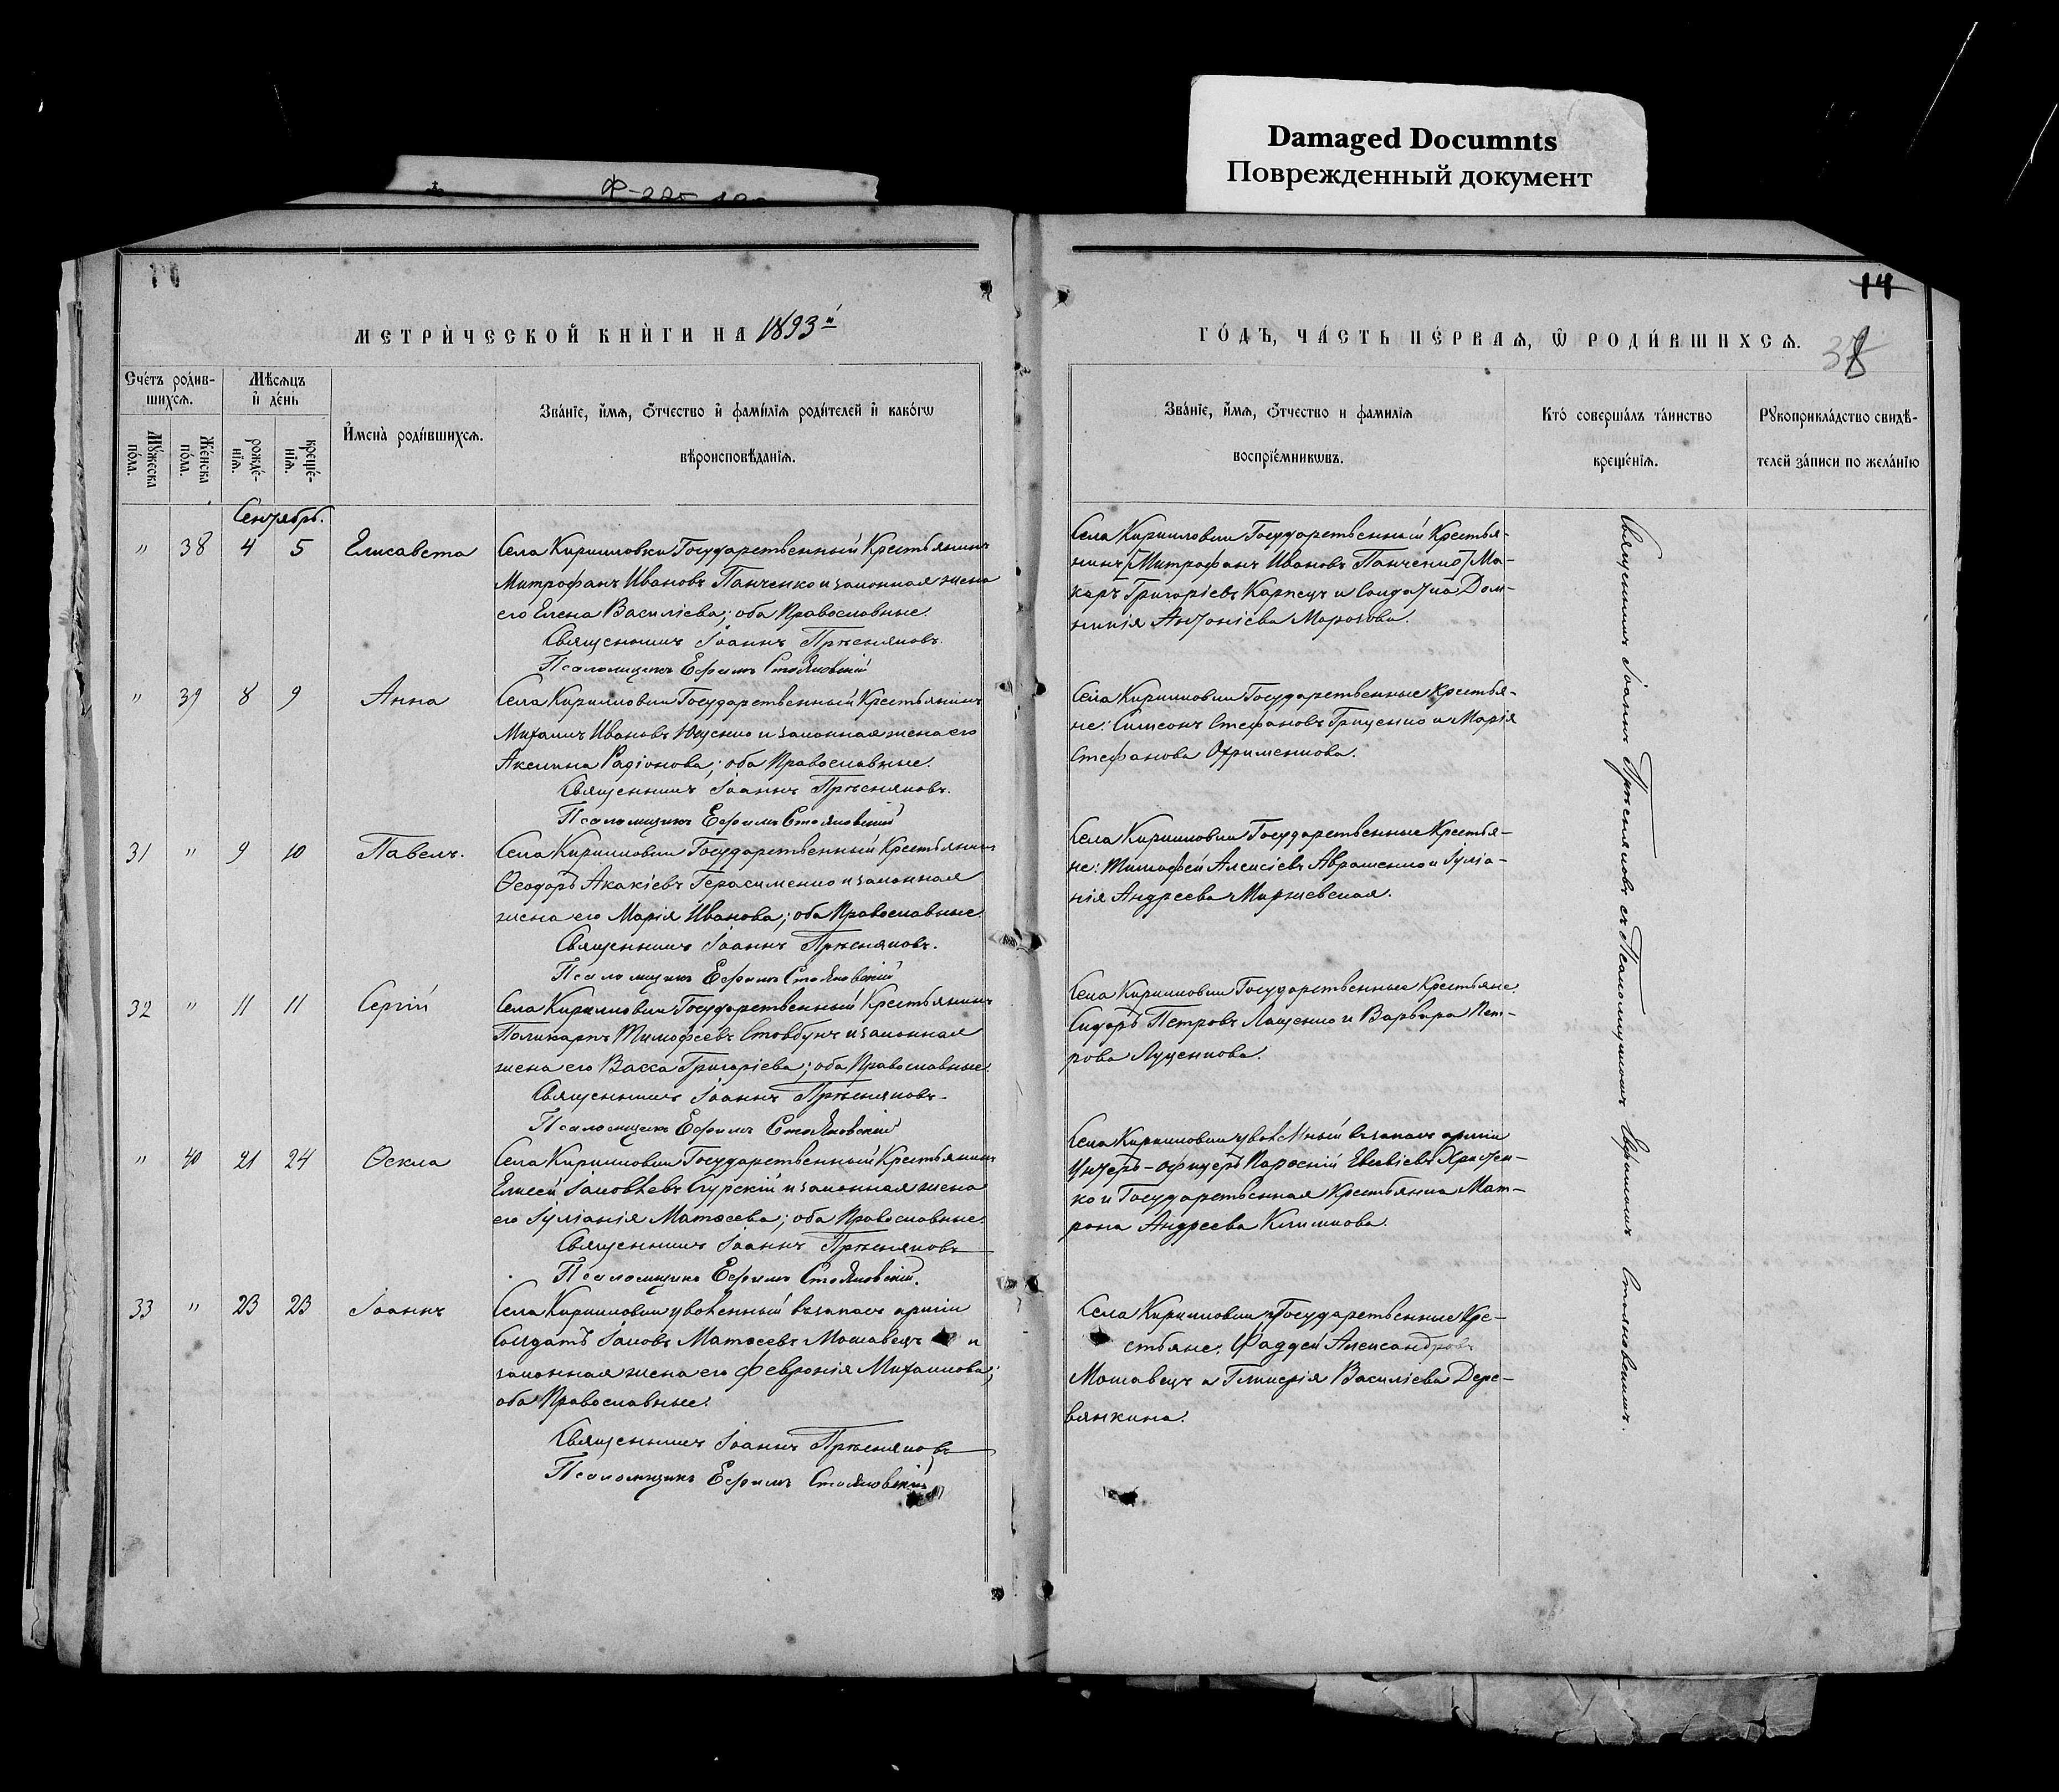 Damaged Documnts
Поврежденный документ
МЕТРИ́ЧЕСКОЙ КНИ́ГИ НА 1893й
ГО́ДЪ, ЧА́СТЬ ПЕ́РВАѦ, Ѿ РОДИ́ВШИХСѦ.
14
Сче́тъ роди́в-
шихсѧ.
Мѣ́сѧцъ
и҆ де́нь
Мꙋ́жеска по́ла.
Же́нска по́ла.
рожде́-нїѧ.
креще́-нїѧ.
И҆мена̀ роди́вшихсѧ.
Зва́нїе, и҆́мѧ, ѻ҆́тчество и҆ фами́лїѧ роди́телей и҆ како́гѡ
вѣроисповѣ́данїѧ.
Зва́нїе, и҆́мѧ, ѻ҆́тчество и фами́лїѧ
воспрїе́мникѡвъ.
Кто́ соверша́лъ та́инство
креще́нїѧ.
Рꙋкоприкла́дство свидѣ́-
телей за́писи по жела́нїю
Сентябрь.
" 38 4 5 Елисавета
Села Кирилловки Государственный Крестьянинъ
Митрофанъ Ивановъ Панченко и законная жена
его Елена Василіева; оба Православные.
Священникъ Іоаннъ Прѣсняковъ.
Псаломщикъ Ефимъ Стояновскій
Села Кирилловки Государственный Крестья-
нинъ [Митрофанъ Ивановъ Панченко] Ма-
каръ Григоріевъ Карпецъ и Солдатка Дом-
никія Антоніева Морозова.
" 39 8 9 Анна
Села Кирилловки Государственный Крестьянинъ
Михаилъ Ивановъ Ющенко и законная жена его
Акилина Радіонова; оба Православные.
Священникъ Іоаннъ Прѣсняковъ.
Псаломщикъ Ефимъ Стояновскій
Села Кирилловки Государственные Крестья-
не: Симеонъ Стефановъ Гриценко и Марія
Стефанова Охрименкова.
31 " 9 10 Павелъ.
Села Кирилловки Государственный Крестьянинъ
Ѳеодоръ Акакіевъ Герасименко и законная
жена его Марія Иванова; оба Православные.
Священникъ Іоаннъ Прѣсняковъ.
Псаломщикъ Ефимъ Стояновскій
Села Кирилловки Государственные Крестья-
не: Тимофей Алексіевъ Аврашенко и Іуліа-
нія Андреева Маржевская.
32 " 11 11 Сергій
Села Кирилловки Государственный Крестьянинъ
Поликарпъ Тимофеевъ Стовбунъ и законная
жена его Васса Григоріева; оба Православные.
Священникъ Іоаннъ Прѣсняковъ.
Псаломщикъ Ефимъ Стояновскій
Села Кирилловки Государственные Крестьяне:
Сидоръ Петровъ Лащенко и Варвара Пет-
рова Луценкова.
" 40 21 24 Ѳекла
Села Кирилловки Государственный Крестьянинъ
Елисей Іаковлевъ Сурскій и законная жена
его Іуліанія Матвеева; оба Православные.
Священникъ Іоаннъ Прѣсняковъ
Псаломщикъ Ефимъ Стояновскій.
Села Кирилловки въ запасъ арміи
Унтеръ-Офицеръ Христен-
ко и Государственная Крестьянка Мат-
рона Андреева Климкова.
33 " 23 23 Іоаннъ
Села Кирилловки уволенный въ запасъ арміи
Солдатъ Іаковъ Матвеевъ Мошавецъ и
законная жена его Февронія Михаилова;
оба Православные.
Священникъ Іоаннъ Прѣсняковъ
Псаломщикъ Ефимъ Стояновскій
Села Кирилловки Государственные Кре-
стьяне: Фаддей Александровъ
Мошавецъ и Гликерія Василіева Дере-
вянкина.
Священникъ Іоаннъ Прѣсняковъ съ Псаломщикомъ Ефимомъ Стояновскимъ.